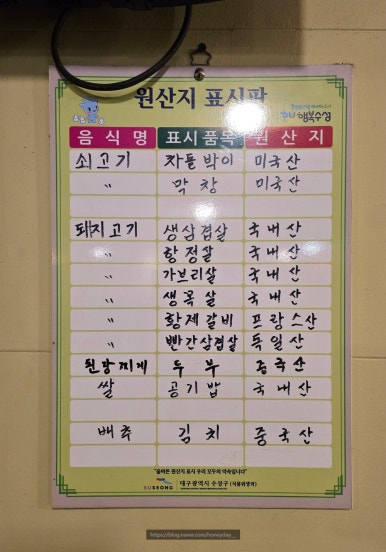 원산지 표시판
행복수성
음식명 표시품목 원산지
쇠고기 차돌박이 미국산
〃 막창 미국산
돼지고기 생삼겹살 국내산
〃 항정살 국내산
〃 가브리살 국내산
〃 생목살 국내산
〃 황제갈비 프랑스산
〃 빨간삼겹살 독일산
된장찌게 두부 중국산
쌀 공기밥 국내산
배추 김치 중국산
"올바른 원산지 표시 우리 모두의 약속입니다"
SUSEONG 대구광역시 수성구 (식품위생과)
https://blog.naver.com/honeyday__